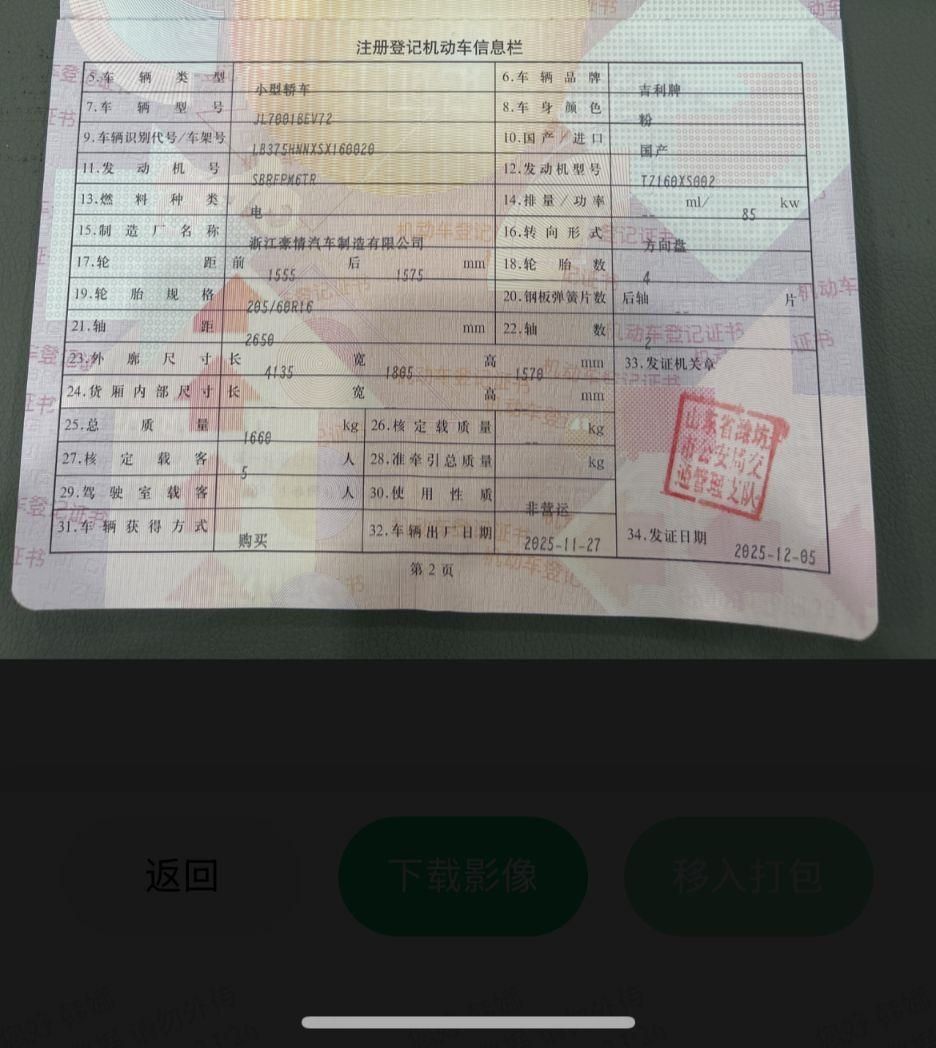 注册登记机动车信息栏
5.车辆类型 小型轿车 6.车辆品牌 吉利牌
7.车辆型号 JL7001BEV72 8.车身颜色 粉
9.车辆识别代号/车架号 LB375HNNXSX160020 10.国产/进口 国产
11.发动机号 SBRFPM6TR 12.发动机型号 TZ160XS002
13.燃料种类 电 14.排量/功率 -- ml/ 85 kw
15.制造厂名称 浙江豪情汽车制造有限公司 16.转向形式 方向盘
17.轮距 前 1555 后 1575 mm 18.轮胎数 4
19.轮胎规格 205/60R16 20.钢板弹簧片数 后轴 -- 片
21.轴距 2650 mm 22.轴数 2
23.外廓尺寸 长 4135 宽 1805 高 1570 mm 33.发证机关章
24.货厢内部尺寸 长 宽 高 mm
25.总质量 1660 kg 26.核定载质量 -- kg
山东省潍坊
市公安局交
通管理支队
27.核定载客 5 人 28.准牵引总质量 kg
29.驾驶室载客 人 30.使用性质 非营运
31.车辆获得方式 购买 32.车辆出厂日期 2025-11-27 34.发证日期 2025-12-05
第2页
返回 下载影像 移入打包